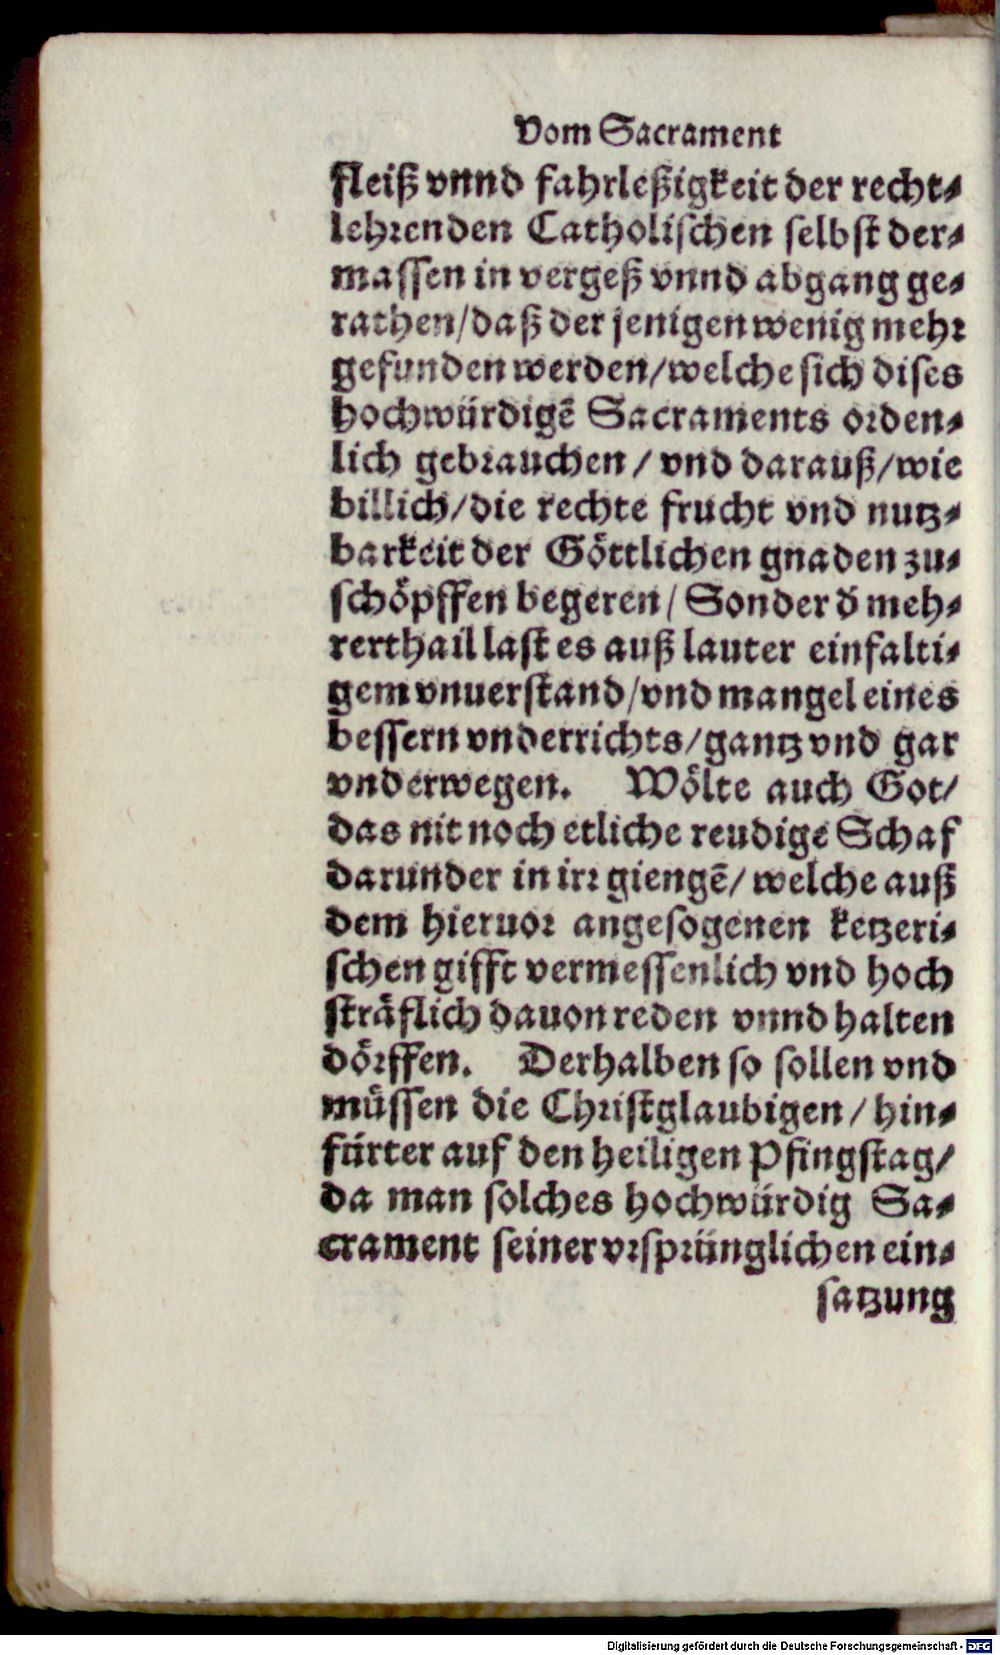 Vom Sacrament
fleiß vnnd fahrleßigkeit der recht⸗
lehrenden Catholischen selbst der⸗
massen in vergeß vnnd abgang ge⸗
rathen/daß der jenigen wenig mehr
gefunden werden/welche sich dises
hochwürdigē Sacraments orden⸗
lich gebrauchen/ vnd darauß/wie
billich/die rechte frucht vnd nutz⸗
barkeit der Göttlichen gnaden zu⸗
schöpffen begeren/ Sonder d̄ meh⸗
rerthail last es auß lauter einfalti⸗
gem vnuerstand/vnd mangel eines
bessern vnderrichts/gantz vnd gar
vnderwegen. Wölte auch Got/
das nit noch etliche reudige Schaf
darunder in irr giengē/ welche auß
dem hieruor angesogenen ketzeri⸗
schen gifft vermessenlich vnd hoch
sträflich dauon reden vnnd halten
dörffen. Derhalben so sollen vnd
müssen die Christglaubigen/ hin⸗
fürter auf den heiligen Pfingstag/
da man solches hochwürdig Sa⸗
crament seiner vrsprünglichen ein⸗
satzung
Digitalisierung gefördert durch die Deutsche Forschungsgemeinschaft - DFG